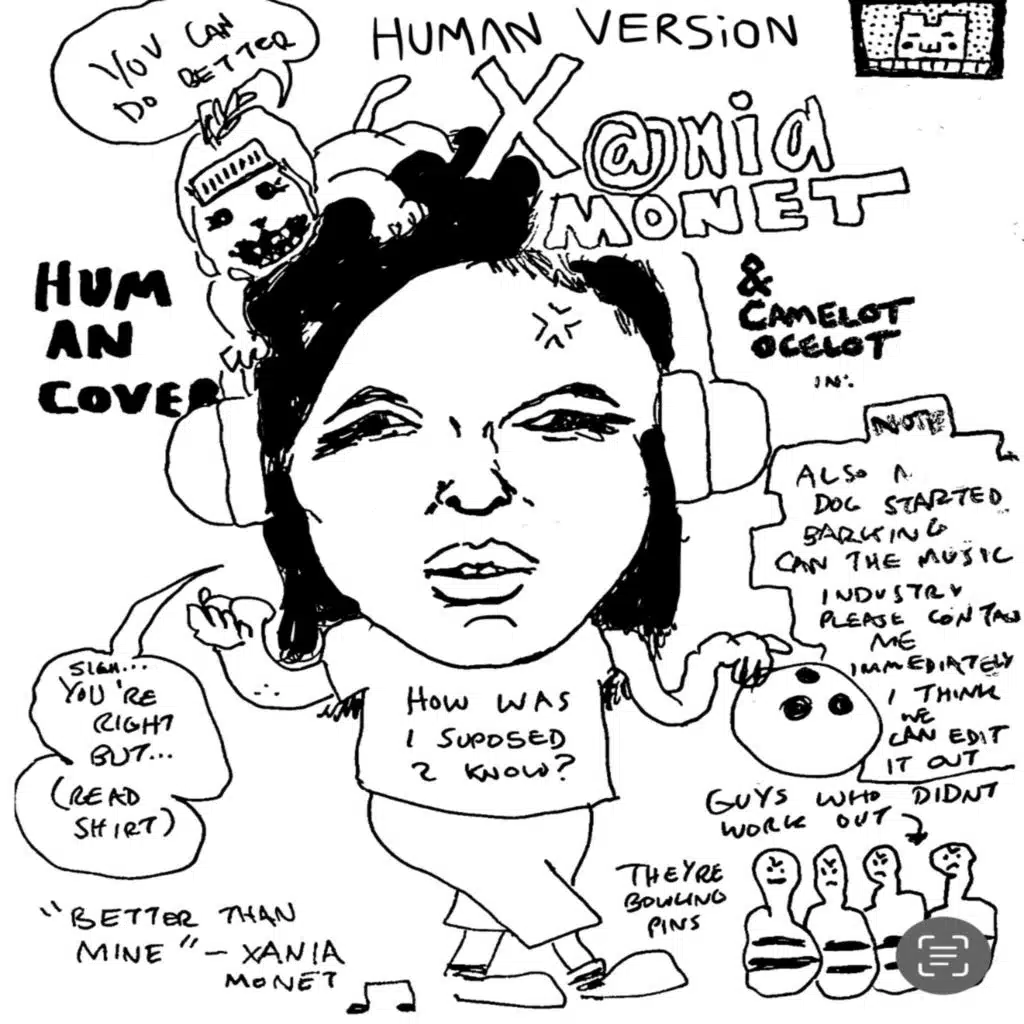 YOU CAN
DO BETTER
HUMAN VERSION
X@NIA
MONET
HUM
AN
COVER
&
CAMELOT
OCELOT
IN:
NOTE
ALSO A
DOG STARTED
BARKING
CAN THE MUSIC
INDUSTRY
PLEASE CONTACT
ME
IMMEDIATELY
I THINK
WE
CAN EDIT
IT OUT
SIGH...
YOU'RE
RIGHT
BUT...
(READ
SHIRT)
HOW WAS
I SUPOSED
2 KNOW?
GUYS WHO DIDNT
WORK OUT
THEYRE
BOWLING
PINS
"BETTER THAN
MINE" – XANIA
MONET